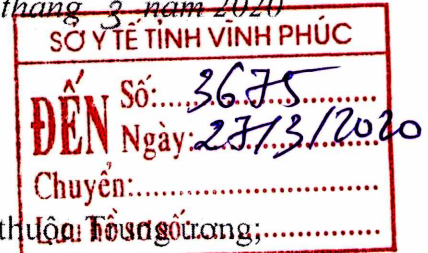 tháng 3 năm 2020
SỞ Y TẾ TỈNH VĨNH PHÚC
ĐẾN
Số: 3675
Ngày: 27/3/2020
Chuyển:
Lưu hồ sơ số:
thuộc Trung ương;